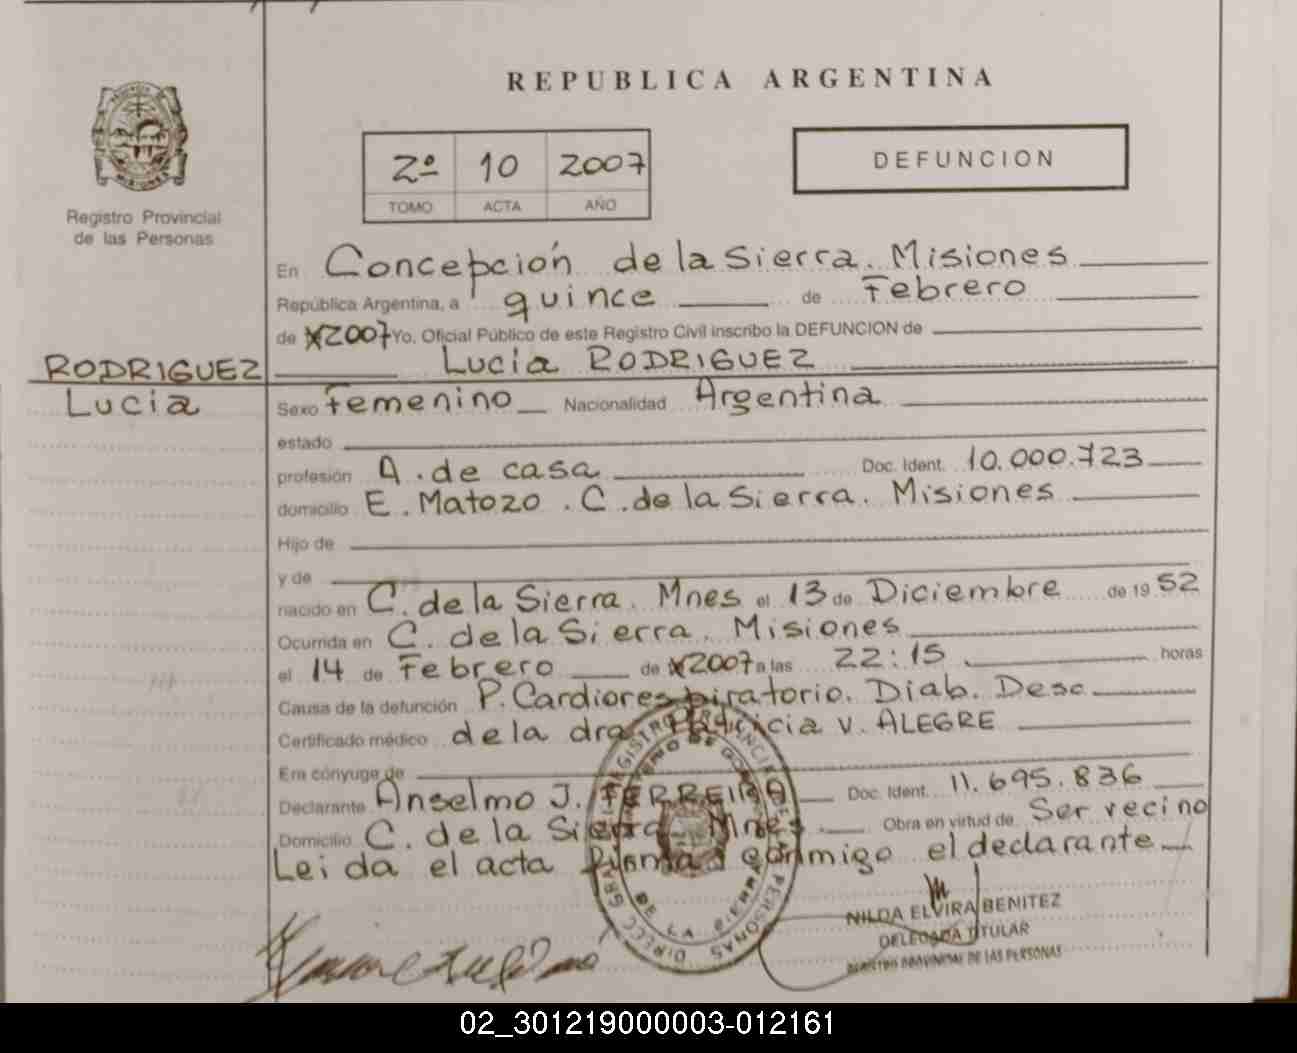 REPUBLICA ARGENTINA
2º 10 2007
TOMO ACTA AÑO
DEFUNCION
Registro Provincial
de las Personas
RODRIGUEZ
Lucia
En Concepción de la Sierra. Misiones
República Argentina, a quince de Febrero
de 2007 Yo, Oficial Público de este Registro Civil inscribo la DEFUNCION de
Lucia RODRIGUEZ
Sexo Femenino Nacionalidad Argentina
estado
profesión A. de casa Doc. Ident. 10.000.723
domicilio E. Matozo . C. de la Sierra. Misiones
Hijo de
y de
nacido en C. de la Sierra. Mnes el 13 de Diciembre de 19 52
Ocurrida en C. de la Sierra. Misiones
el 14 de Febrero de 2007 a las 22:15 horas
Causa de la defunción P. Cardiorespiratorio. Diab. Desc
Certificado médico de la dra Patricia V. ALEGRE
Era cónyuge de
Declarante Anselmo J. FERREIRA Doc. Ident. 11.695.836
Domicilio C. de la Sierra Mnes. Obra en virtud de Ser vecino
Leida el acta firma conmigo el declarante
NILDA ELVIRA BENITEZ
DELEGADA TITULAR
REGISTRO PROVINCIAL DE LAS PERSONAS
02_301219000003-012161